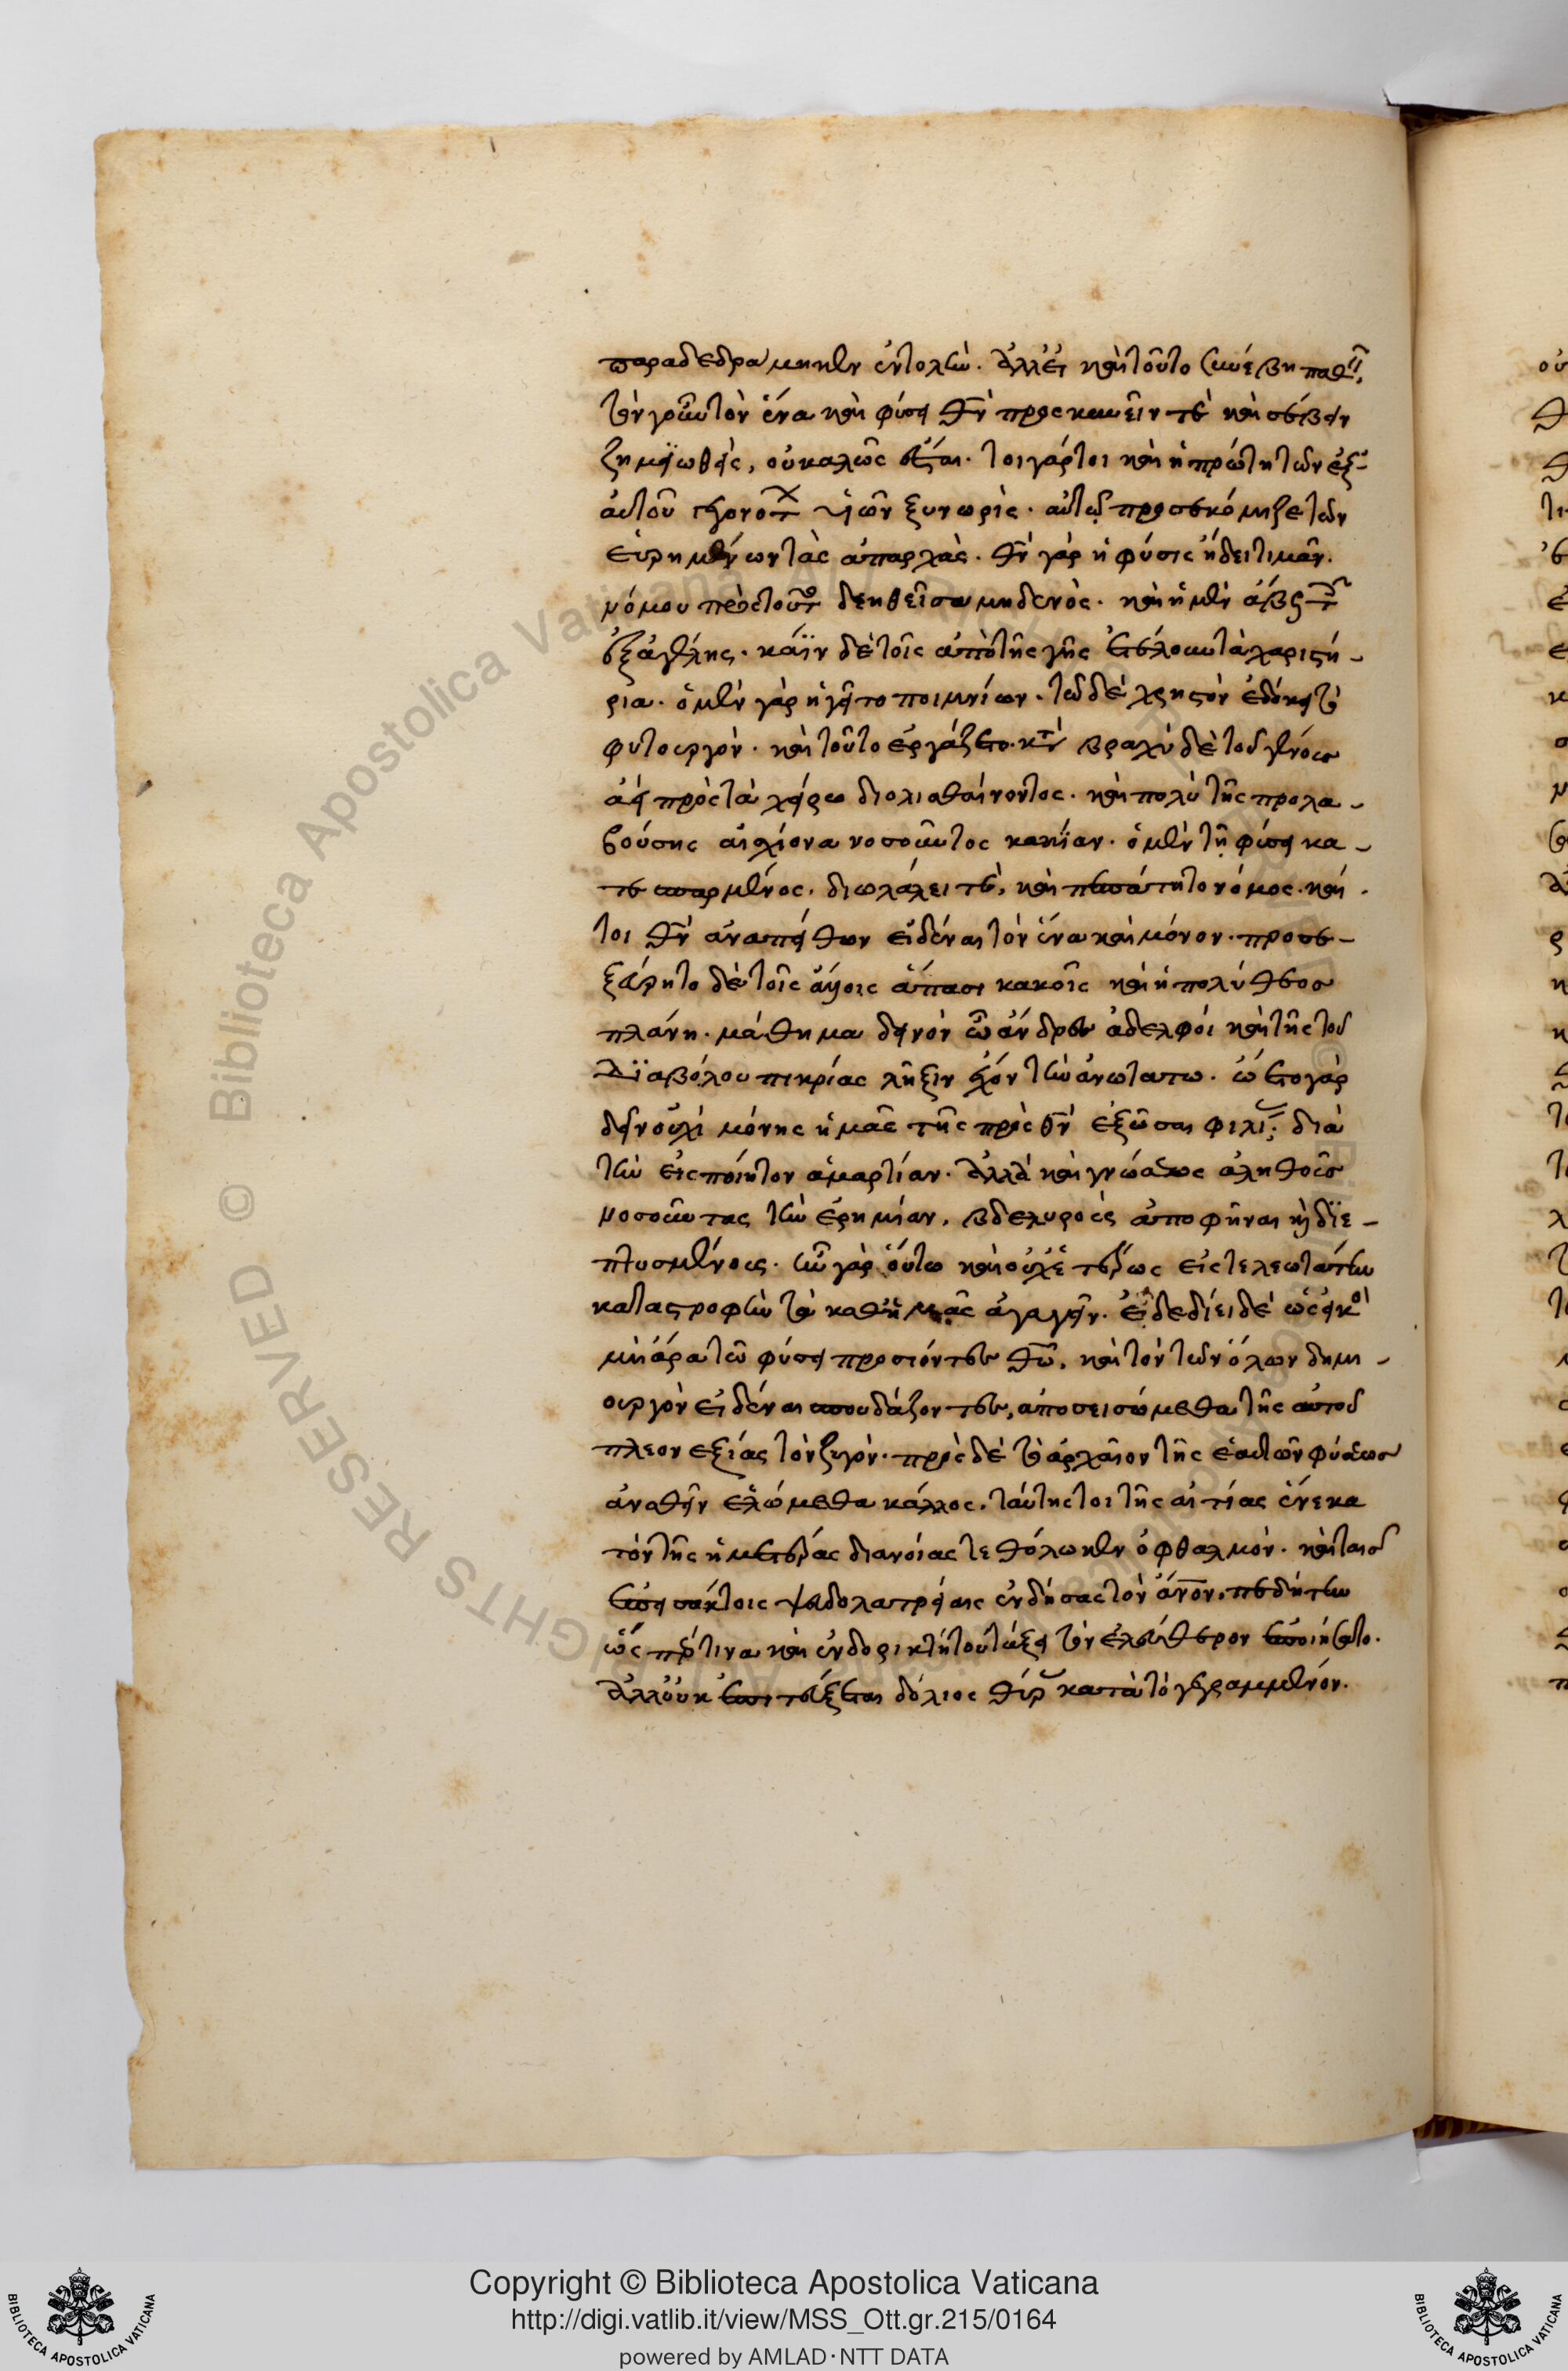 παραδεδραμηκεν ἐντολὴν. ἀλλ' εἰ καὶ τοῦτο συνέβη παθεῖν,
τὸν γοῦν τὸν ἕνα καὶ φύσει θν προσκυνεῖν τὲ καὶ σέβειν
ζημιωθεὶς, οὐκ ἁλῶσεται. τοιγάρτοι καὶ ἡ πρώτη τῶν ἐξ
αὐτοῦ υἱῶν ξυνωρὶς. αὐτῷ προσεκόμιζε τῶν
εὑρημένων τὰς ἀπαρχὰς. θν γὰρ ἡ φύσις ᾔδει τιμᾶν.
νόμου πρὸς τοῦτο δεηθεῖσα μηδενὸς. καὶ ὁ μὲν ἄβελ
ἐξ ἀγέλης. κάϊν δὲ τοῖς ἀπὸ τῆς γῆς ἐτέλουν τὰ χαριστή-
ρια. ὁ μὲν γὰρ ἡγεῖτο ποιμνίων. τῷ δὲ χρηστὸν ἐδόκει τὸ
φυτουργὸν. καὶ τοῦτο ἐργάζετο. βραχὺ δὲ τοῦ γένους
ἀεὶ πρὸς τὰ χείρω διολισθαίνοντος. καὶ πολὺ τῆς προλα-
βούσης αἰσχίονα νοσοῦντος κακίαν. ὁ μὲν τῇ φύσει κα-
τεσπαρμένος, διωλώλει τὲ, καὶ πεπάτητο νόμος. καί-
τοι θν ἀναπείθων εἰδέναι τὸν ἕνα καὶ μόνον. προσε-
ξεύρητο δὲ τοῖς ἄλλοις ἅπασι κακοῖς καὶ ἡ πολύθεος
πλάνη. μάθημα δεινὸν ὦ ἄνδρες ἀδελφοί καὶ τῆς τοῦ
Διαβόλου πικρίας λῆξιν ἔχον τὴν ἀνωτάτω. ᾤετο γὰρ
δεῖν οὐχὶ μόνης ἡμᾶς τῆς πρὸς θν ἐξῶσαι φιλίας, διὰ
τὴν εἰσποίητον ἁμαρτίαν. ἀλλὰ καὶ γνώσεως ἀληθοῦς
νοσοῦντας τὴν ἐρημίαν, βδελυροὺς ἀποφῆναι καὶ διε-
πτυσμένους. ἦν γὰρ οὕτω καὶ οὐχ ἑτέρως εἰς τελεωτάτην
καταστροφὴν τὰ καθ' ἡμᾶς ἀγαγεῖν. ἐδεδίει δὲ ὡς εἰκὸς
μὴ ἄρα τῷ φύσει προσιόντες θῶ, καὶ τὸν τῶν ὅλων δημι-
ουργὸν εἰδέναι σπουδάζοντες, ἀποσεισώμεθα τῆς αὐτοῦ
πλεονεξίας τὸν ζυγὸν. πρὸς δὲ τὸ ἀρχαῖον τῆς ἑαυτῶν φύσεως
ἀναθεῖν ἑλώμεθα κάλλος. ταύτης τοι τῆς αἰτίας ἕνεκα
τὸν τῆς ἡμετέρας διανοίας τεθόλωκεν ὀφθαλμὸν. καὶ ταῖς
ἐπεισάκτοις ψευδολατρείαις ἐνδήσας τὸν ἄνον, πεδήτην
ὥσπέρ τινα καὶ ἐν δορικτήτου τάξει τὸν ἐλεύθερον ἐποιήσατο.
ἀλλ' οὐκ ἐπιτεύξεται δόλιος θήρας κατὰ τὸ γεγραμμένον.
Copyright © Biblioteca Apostolica Vaticana
http://digi.vatlib.it/view/MSS_Ott.gr.215/0164
powered by AMLAD·NTT DATA